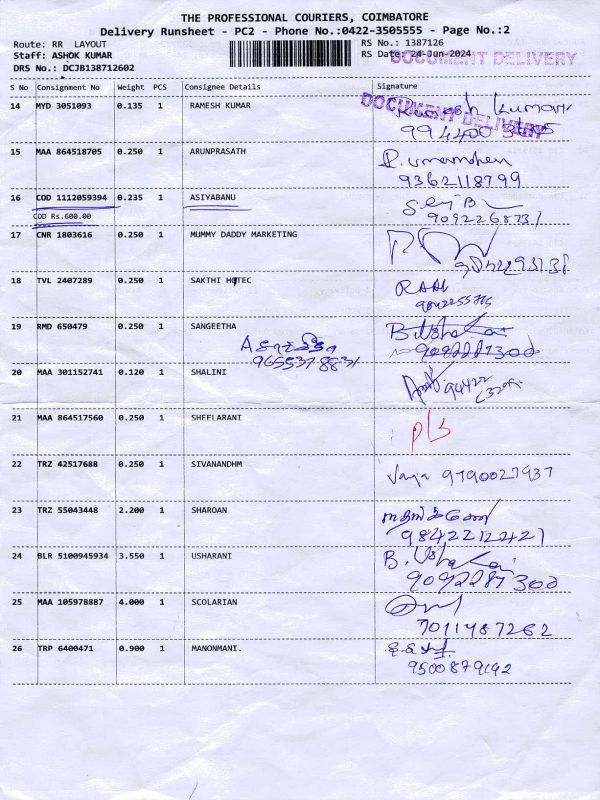 THE PROFESSIONAL COURIERS, COIMBATORE
Delivery Runsheet - PC2 - Phone No.:0422-3505555 - Page No.:2
Route: RR LAYOUT
RS No.: 1387126
Staff: ASHOK KUMAR
RS Date: 24-Jun-2024
DOCUMENT DELIVERY
DRS No.: DCJB138712602
S No Consignment No Weight PCS Consignee Details Signature
14 MYD 3051093 0.135 1 RAMESH KUMAR
DOCUMENT DELIVERY
Kumar
15 MAA 864518705 0.250 1 ARUNPRASATH
9362118799
16 COD 1112059394 0.235 1 ASIYABANU
COD Rs.600.00
9092268731
17 CNR 1803616 0.250 1 MUMMY DADDY MARKETING
18 TVL 2407289 0.250 1 SAKTHI HOTEC
19 RMD 650479 0.250 1 SANGEETHA
9655378831
20 MAA 301152741 0.120 1 SHALINI
21 MAA 864517560 0.250 1 SHEELARANI
22 TRZ 42517688 0.250 1 SIVANANDHM
9790027937
23 TRZ 55043448 2.200 1 SHAROAN
9842212421
24 BLR 5100945934 3.550 1 USHARANI
B. Usha
9092287300
25 MAA 105978887 4.000 1 SCOLARIAN
7011487262
26 TRP 6400471 0.900 1 MANONMANI.
9500879192